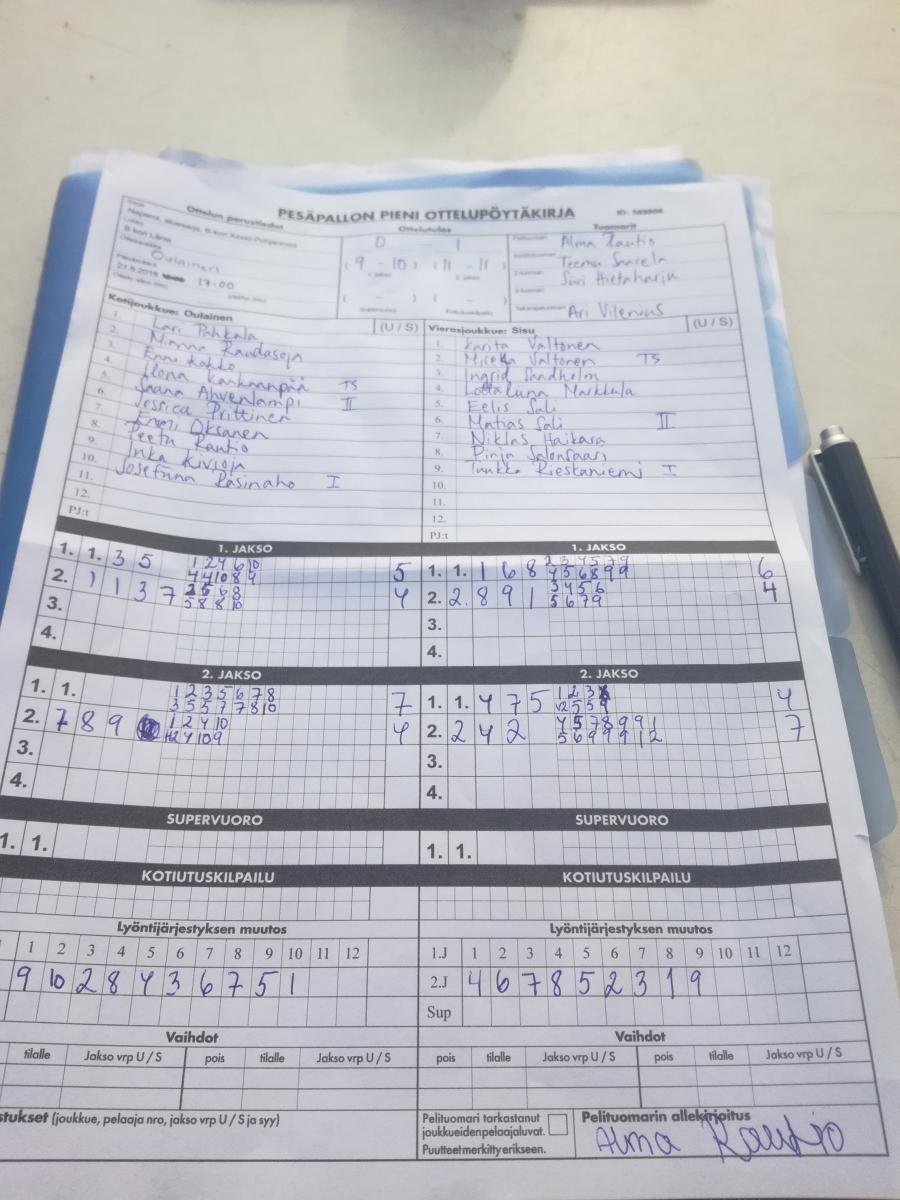 PESÄPALLON PIENI OTTELUPÖYTÄKIRJA
Ottelun perustiedot
Ottelutulos
Tuomarit
Oulainen
21.6.2018 17:00
0 1
(9 - 10) (11 - 11)
( - ) ( - )
Alma Rautio
Teemu Saarela
Suvi Hietaharju
Ari Vilenius
Kotijoukkue: Oulainen (U / S)
1. Lari Pahkala
2. Nianna Raudasoja
3. Enni Kokko
4. Ilona Karhaanpää TS
5. Saana Ahvenlampi II
6. Jessica Prittinen
7. Emmi Oksanen
8. Teetu Rautio
9. Inka Kivioja
10. Josefiina Rasinaho I
11.
12.
PJ:t
Vierasjoukkue: Sisu (U / S)
1. Karita Valtonen
2. Miroka Valtonen TS
3. Ingrid Sandholm
4. Lotta Luna Markkula
5. Eelis Sali
6. Matias Sali II
7. Niklas Haikara
8. Pinja Salonsaari
9. Tuukka Rieskaniemi I
10.
11.
12.
PJ:t
1. JAKSO
1. 1. 3 5 1 2 4 6 10 5
4 4 10 8 9
2. 1 1 3 7 2 5 6 8 4
5 8 8 10
3.
4.
1. JAKSO
1. 1. 1 6 8 2 3 4 5 7 9 6
4 5 6 8 9 9
2. 2. 8 9 1 3 4 5 6 4
5 6 7 9
3.
4.
2. JAKSO
1. 1. 1 2 3 5 6 7 8 7
3 5 5 7 7 8 10
2. 7 8 9 1 2 4 10 4
2 4 10 9
3.
4.
2. JAKSO
1. 1. 4 7 5 1 2 3 4
2 5 5 9
2. 2 4 2 4 5 7 8 9 9 1 7
5 6 9 9 9 1 2
3.
4.
SUPERVUORO
1. 1.
SUPERVUORO
1. 1.
KOTIUTUSKILPAILU
KOTIUTUSKILPAILU
Lyöntijärjestyksen muutos
1 2 3 4 5 6 7 8 9 10 11 12
9 10 2 8 4 3 6 7 5 1
Lyöntijärjestyksen muutos
1.J 1 2 3 4 5 6 7 8 9 10 11 12
2.J 4 6 7 8 5 2 3 1 9
Sup
Vaihdot
tilalle Jakso vrp U / S pois tilalle Jakso vrp U / S
Vaihdot
pois tilalle Jakso vrp U / S pois tilalle Jakso vrp U / S
stukset (joukkue, pelaaja nro, jakso vrp U / S ja syy)
Pelituomari tarkastanut
joukkueiden pelaajaluvat.
Puutteet merkitty erikseen.
Pelituomarin allekirjoitus
Alma Rautio